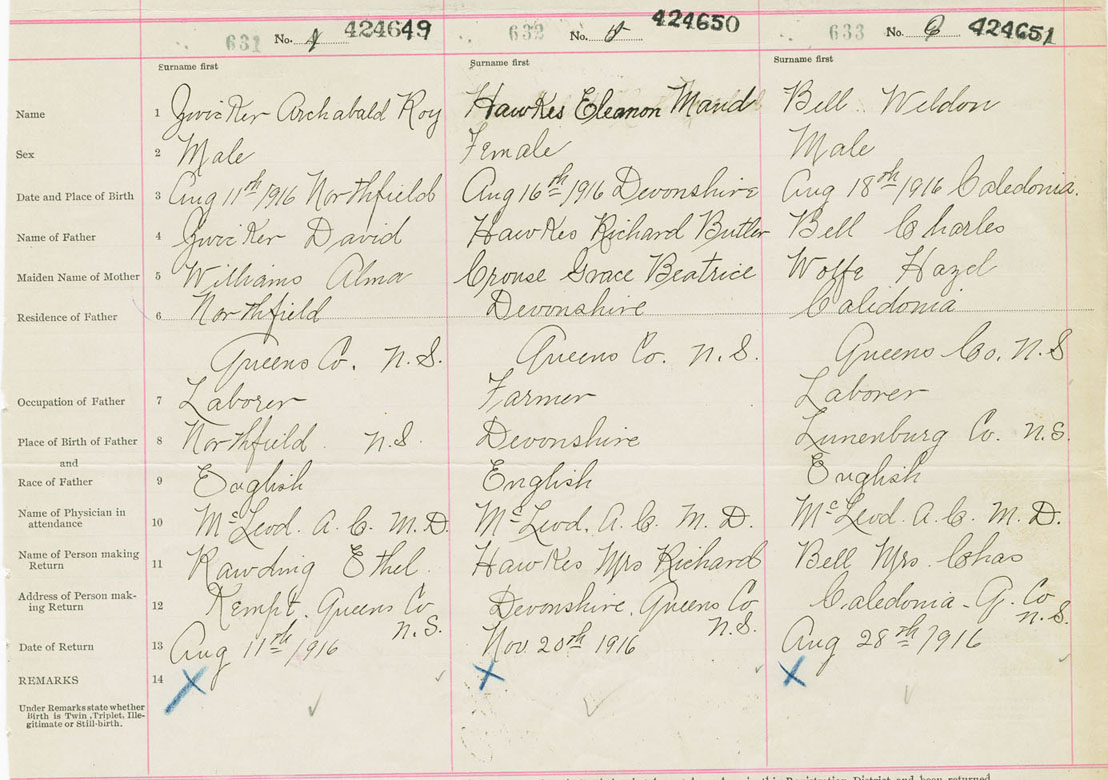 631 No. 4 424649 632 No. 5 424650 633 No. 6 424651
Surname first Surname first Surname first
Name 1 Zwicker Archabald Roy Hawkes Eleanon Maud Bell Weldon
Sex 2 Male Female Male
Date and Place of Birth 3 Aug 11th/1916 Northfield Aug 16th/1916 Devonshire Aug 18th/1916 Caledonia.
Name of Father 4 Zwicker David Hawkes Richard Butler Bell Charles
Maiden Name of Mother 5 Williams Alma Crouse Grace Beatrice Wolfe Hazel
Residence of Father 6 Northfield Devonshire Calidonia
Queens Co. N.S. Queens Co. N.S. Queens Co. N.S
Occupation of Father 7 Laborer Farmer Laborer
Place of Birth of Father 8 Northfield N.S. Devonshire Lunenburg Co. N.S.
and
Race of Father 9 English English English
Name of Physician in attendance 10 McLeod. A. C. M. D. McLeod. A. C. M. D. McLeod. A. C. M. D.
Name of Person making Return 11 Rawding Ethel. Hawkes Mrs Richard Bell Mrs. Chas
Address of Person mak-ing Return 12 Kempt. Queens Co N.S. Devonshire. Queens Co N.S. Caledonia - Q. Co N.S.
Date of Return 13 Aug 11th/1916 Nov 20th 1916 Aug 28th/1916
REMARKS 14 X X X
Under Remarks state whether
Birth is Twin, Triplet, Ille-
gitimate or Still-birth.
in this Registration District and been returned